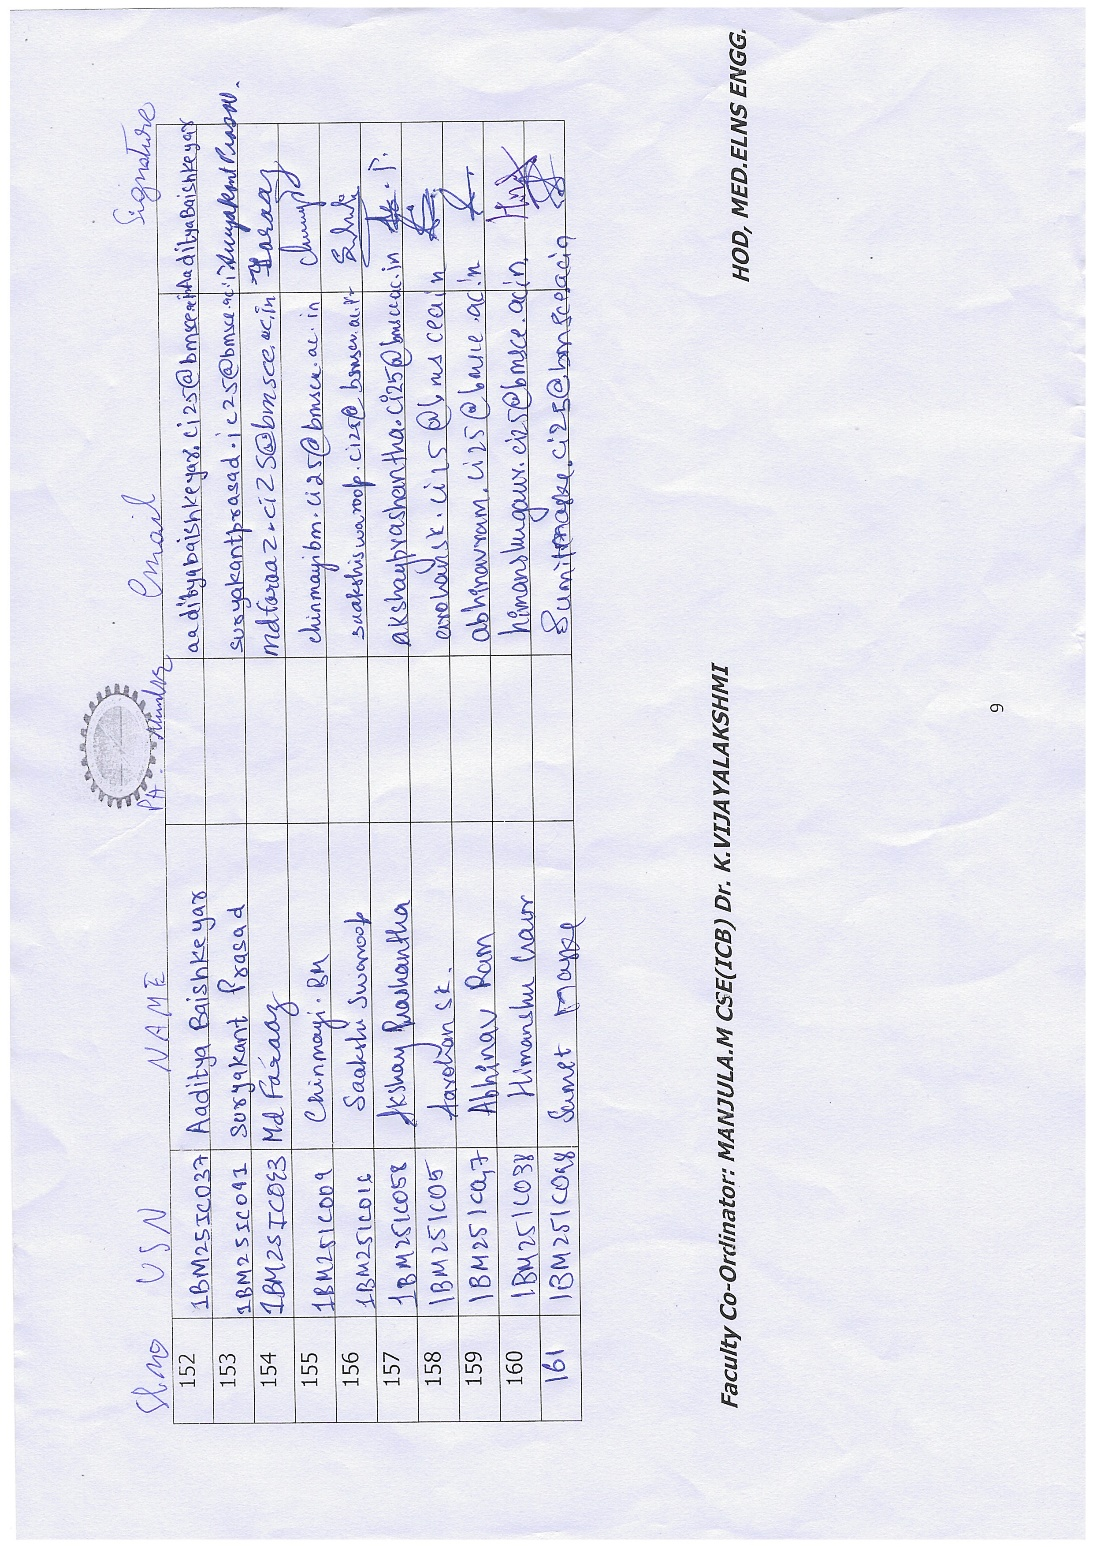 Sl.no USN NAME PA. Email Signature
152 1BM25IC037 Aaditya Baishkeyar aadityabaishkeyar.ci25@bmsce Aaditya Baishkeyar
153 1BM25IC041 Suryakant Prasad suryakantprasad.ic25@bmsce.ac.i Suryakant Prasad.
154 1BM25IC043 Md Faraaz mdfaraaz.ci25@bmsce.ac.in Faraaz
155 1BM25IC009 Chinmayi.BM chinmayibm.ci25@bmsce.ac.in
156 1BM25IC016 Saakshi Swaroop saakshiswaroop.ci25@bmsce.ac.in
157 1BM25IC058 Akshay Prashantha akshayprashantha.ci25@bmsce.ac.in
158 1BM25IC05 Aarohan S.K.
159 1BM25IC047 Abhinav Ram abhinavram.ci25@bmsce.ac.in
160 1BM25IC038 Himanshu Gaur himanshugaur.ci25@bmsce.ac.in
161 1BM25IC048 Sumit
Faculty Co-Ordinator: MANJULA.M CSE(ICB) Dr. K.VIJAYALAKSHMI HOD, MED.ELNS ENGG.
9